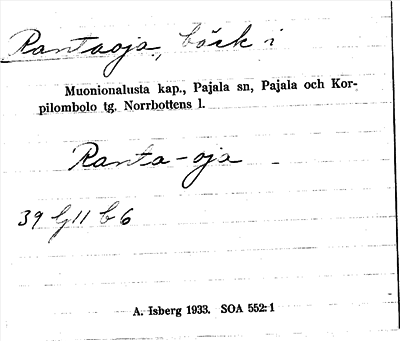 Rantaoja, bäck i
Muonionalusta kap., Pajala sn, Pajala och Kor-
pilombolo tg. Norrbottens l.
Ranta-oja
39 G 11 b 6
A. Isberg 1933. SOA 552:1